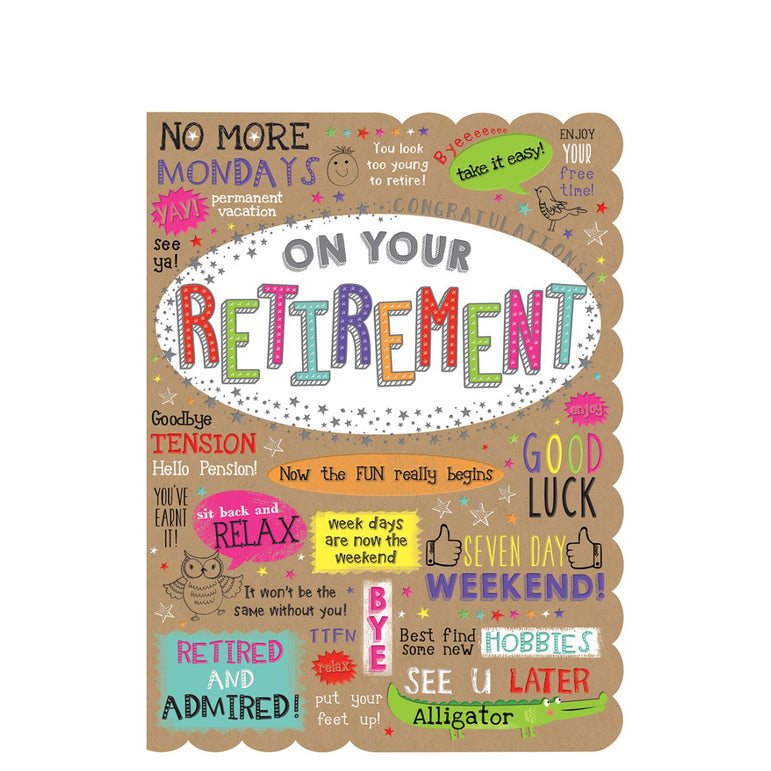 NO MORE
MONDAYS
You look
too young
to retire!
Byeeeeeee
take it easy!
ENJOY
YOUR
free
time!
YAY!
permanent
vacation
see
ya!
CONGRATULATIONS!
ON YOUR
RETIREMENT
Goodbye
TENSION
Hello Pension!
enjoy
GOOD
LUCK
Now the FUN really begins
YOU'VE
EARNT
IT!
sit back and
RELAX
week days
are now the
weekend
SEVEN DAY
WEEKEND!
It won't be the
same without you!
BYE
TTFN
relax
Best find
some new
HOBBIES
RETIRED
AND
ADMIRED!
put your
feet up!
SEE U LATER
Alligator